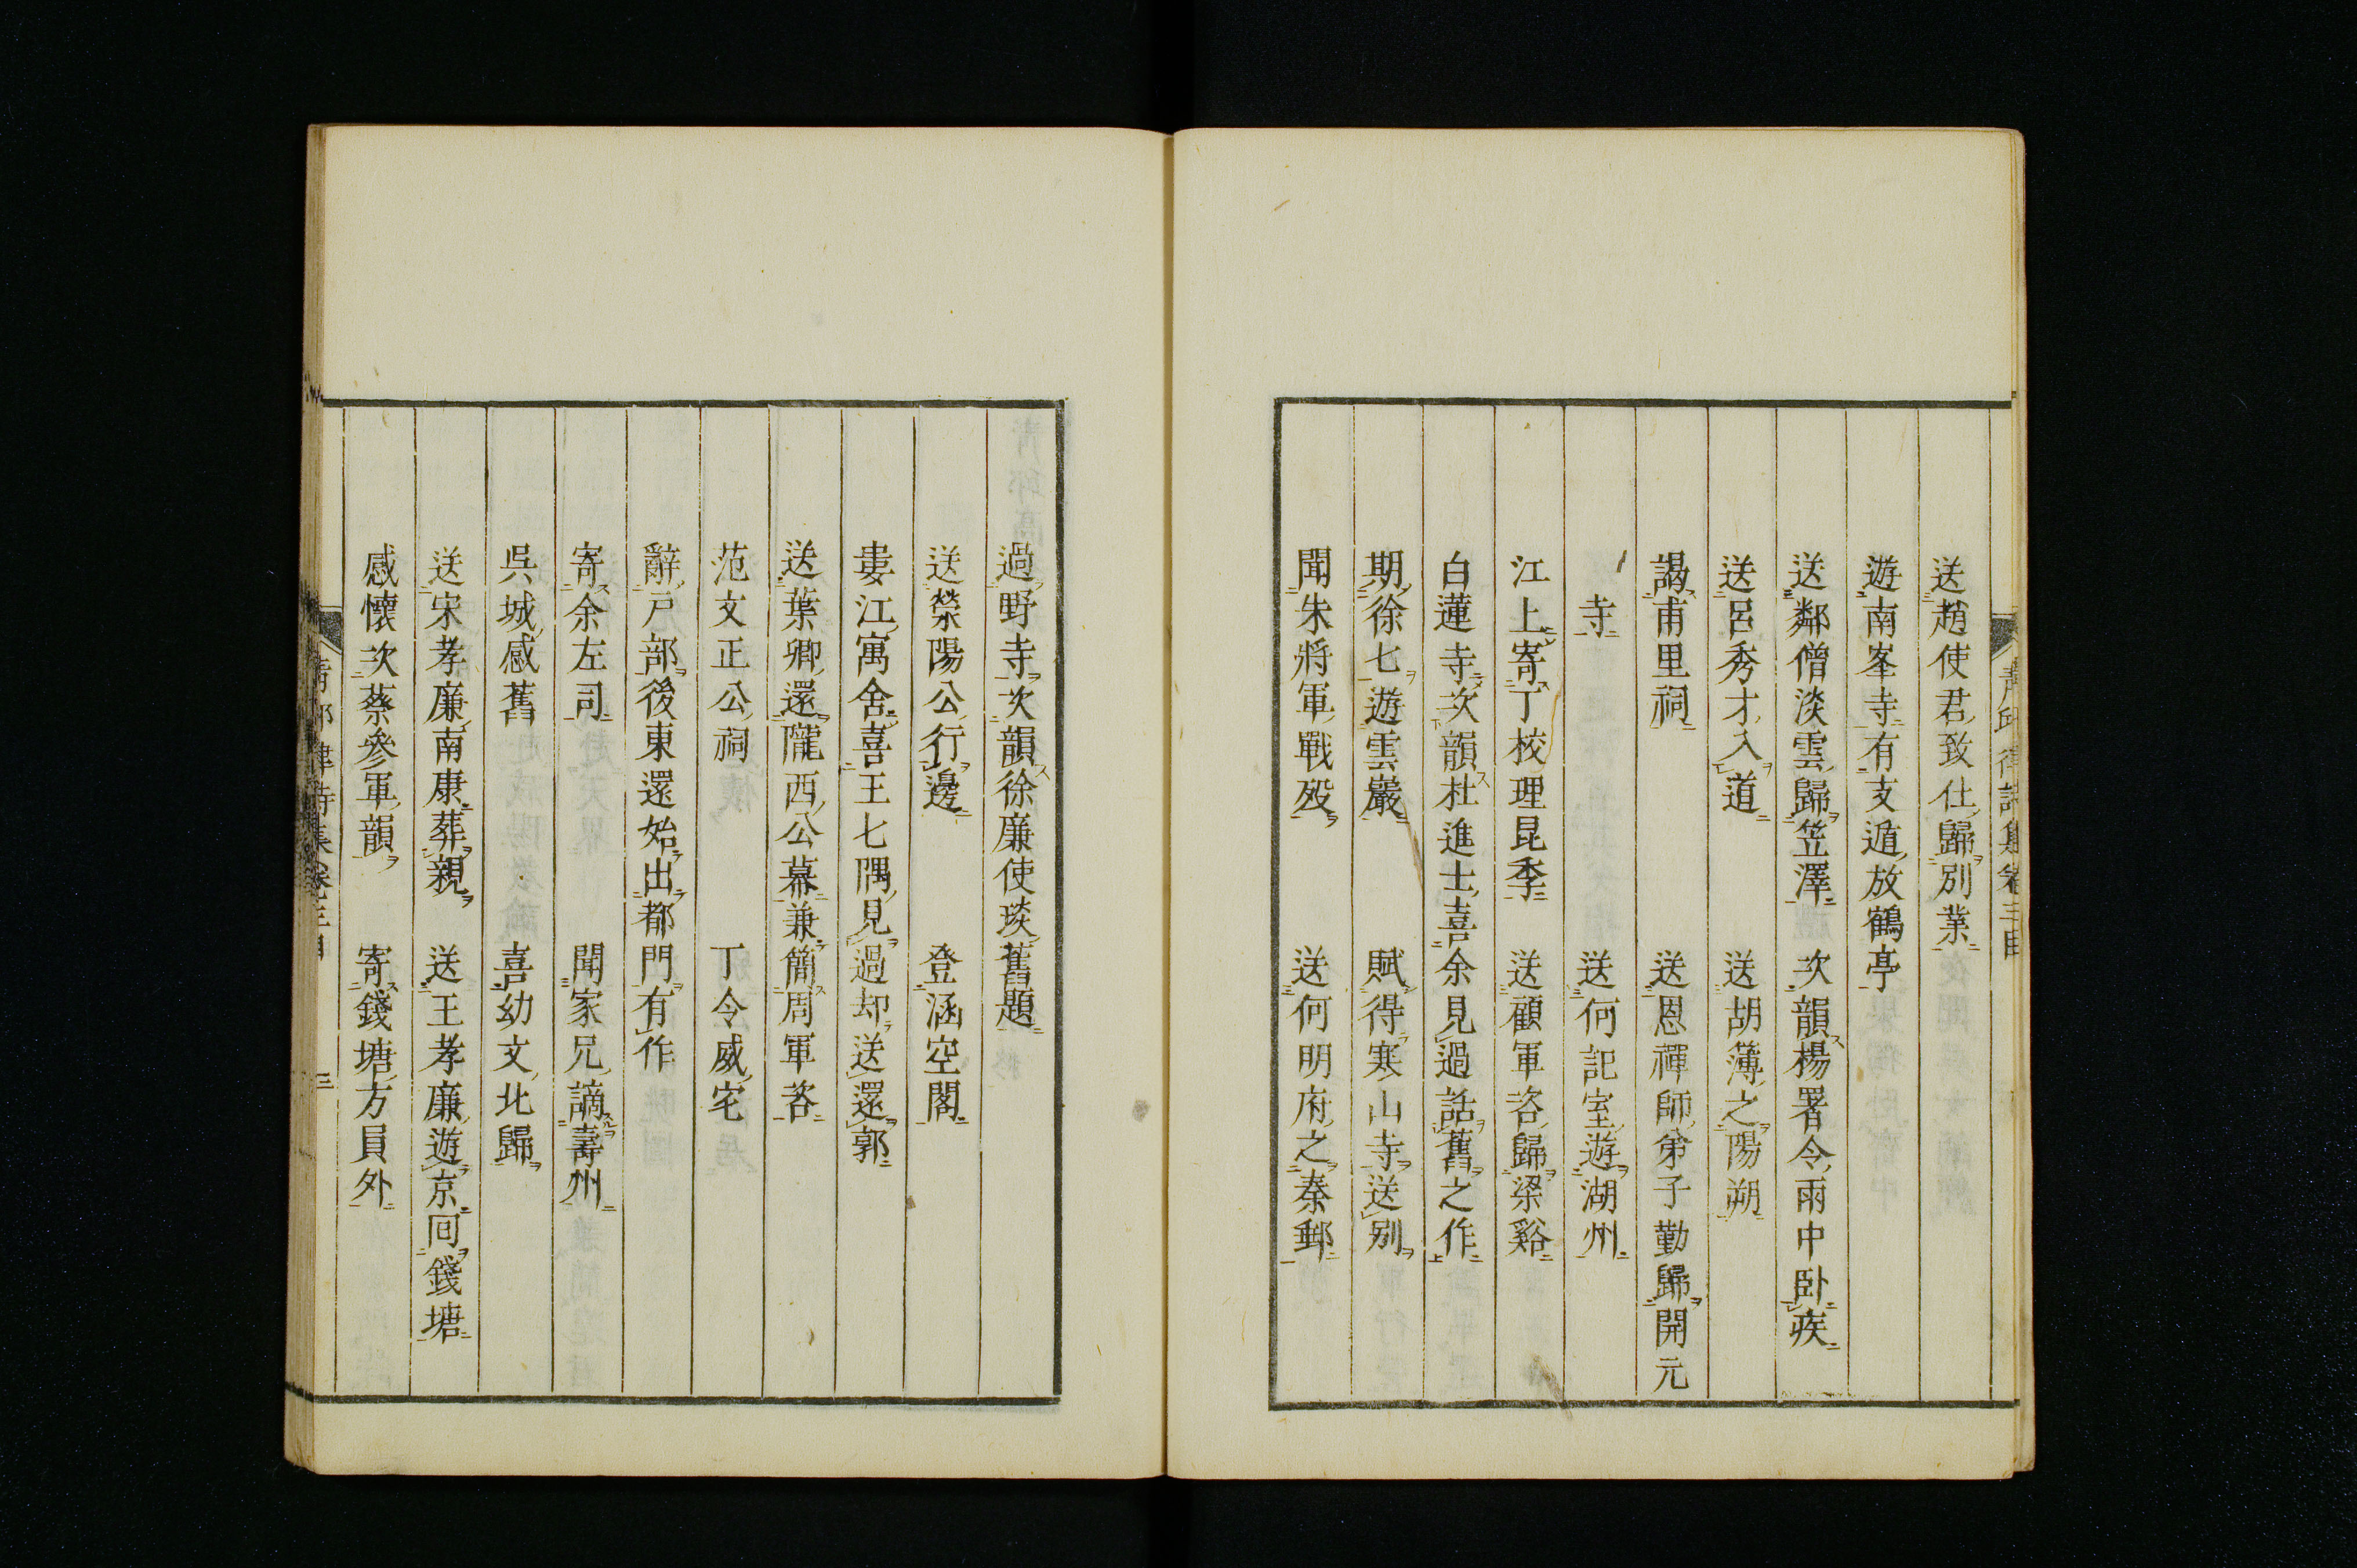 送趙使君致仕歸別業
遊南峯寺有支遁放鶴亭
送鄰僧淡雲歸笠澤 次韻楊署令雨中臥疾
送呂秀才入道 送胡簿之陽朔
謁甫里祠 送恩禪師弟子勤歸開元
寺 送何記室遊湖州
江上寄丁校理昆季 送顧軍咨歸梁谿
白蓮寺次韻杜進士喜余見過話舊之作
期徐七遊雲巖 賦得寒山寺送別
聞朱將軍戰歿 送何明府之秦郵
過野寺次韻徐廉使琰舊題
送榮陽公行邊 登涵空閣
婁江寓舍喜王七隅見過却送還郭
送葉卿還隴西公幕兼簡周軍咨
范文正公祠 丁令威宅
辭戶部後東還始出都門有作
寄余左司 聞家兄謫壽州
吳城感舊 喜幼文北歸
送宋孝廉南康葬親 送王孝廉遊京回錢塘
感懷次蔡參軍韻 寄錢塘方員外
律詩集卷三目 三